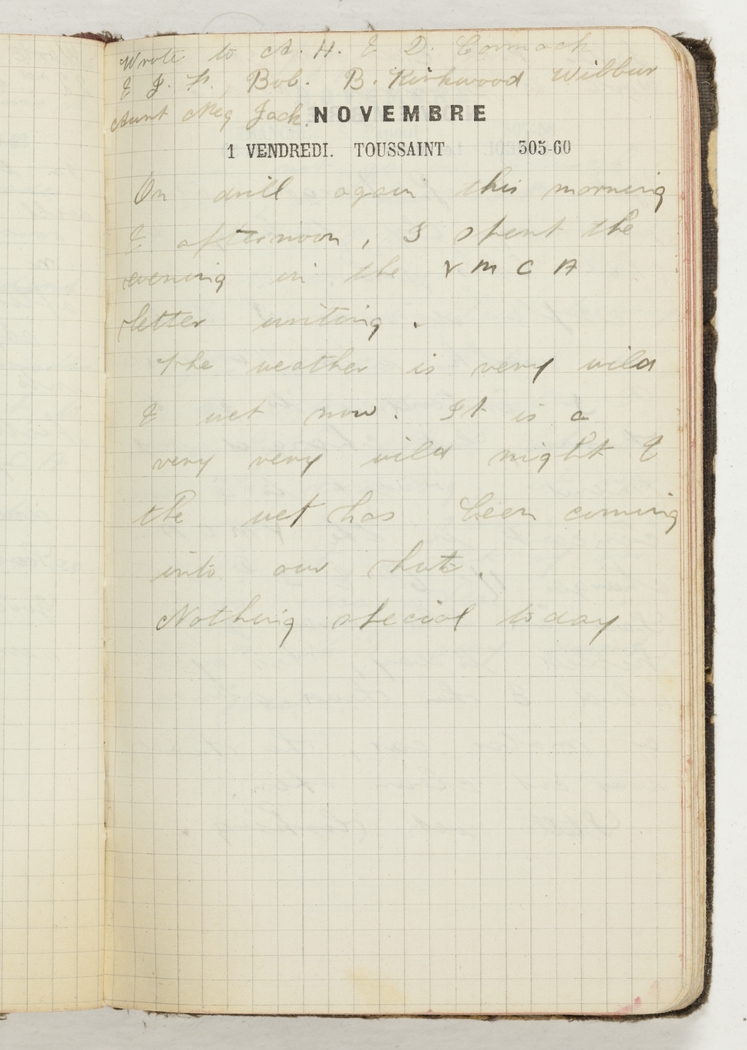 Wrote to A. H. & D. Cormack
& J. Bob. B. Kirkwood Wilbur
Aunt Meg Jack.
NOVEMBRE
1 VENDREDI. TOUSSAINT 305-60
On drill again this morning
& afternoon, I spent the
evening in the YMCA
letter writing.
The weather is very wild
& wet now. It is a
very very wild night &
the wet has been coming
into our hut.
Nothing special today